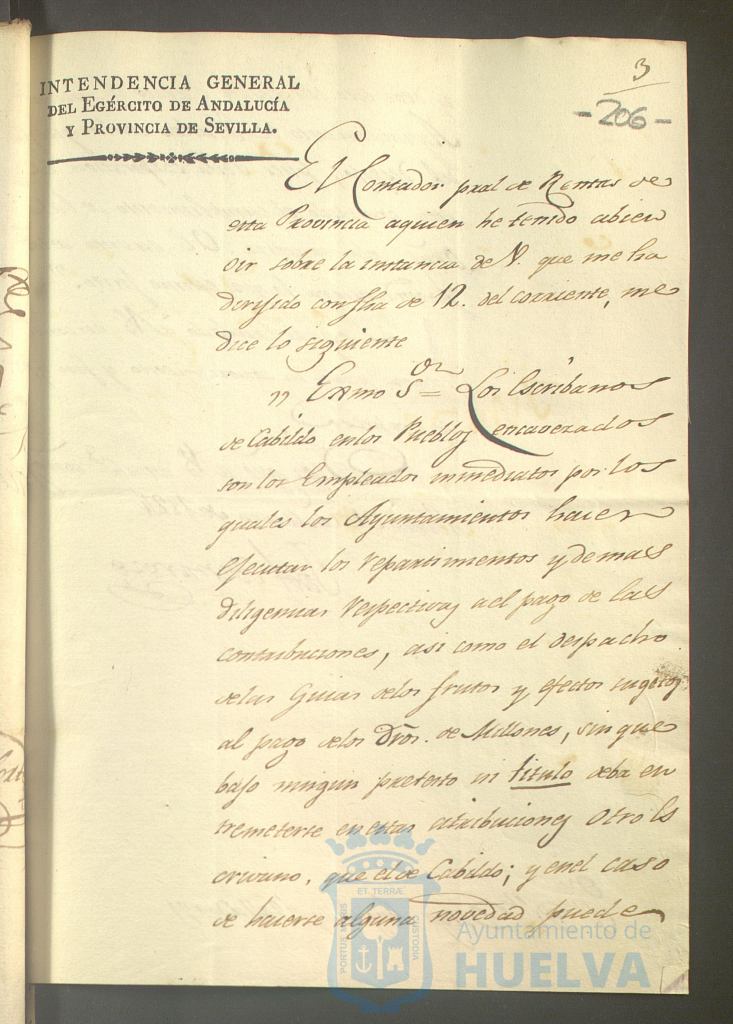 3
-206-
INTENDENCIA GENERAL
DEL EGÉRCITO DE ANDALUCÍA
Y PROVINCIA DE SEVILLA.
El Contador pral de Rentas de
esta Provincia aquien he tenido abien
oir sobre la instancia de V. que me ha
dirijido con fha de 12. del corriente, me
dice lo siguiente
" Exmo Sor = Los Escribanos
de Cabildo en los Pueblos encavezados
son los Empleados inmediatos por los
quales los Ayuntamientos hacen
ejecutar los repartimientos y demas
diligencias respectivas al pago de las
contribuciones, asi como el despacho
de las Guias de los frutos y efectos sugetos
al pago de los Dros. de Millones, sin que
bajo ningun pretesto ni titulo deba en
tremeterse en estas atribuciones otro Es
crivano, que el de Cabildo; y en el caso
de hacerse alguna novedad puede
PORTUS MARIS
ET TERRÆ
CUSTODIA
Ayuntamiento de
HUELVA